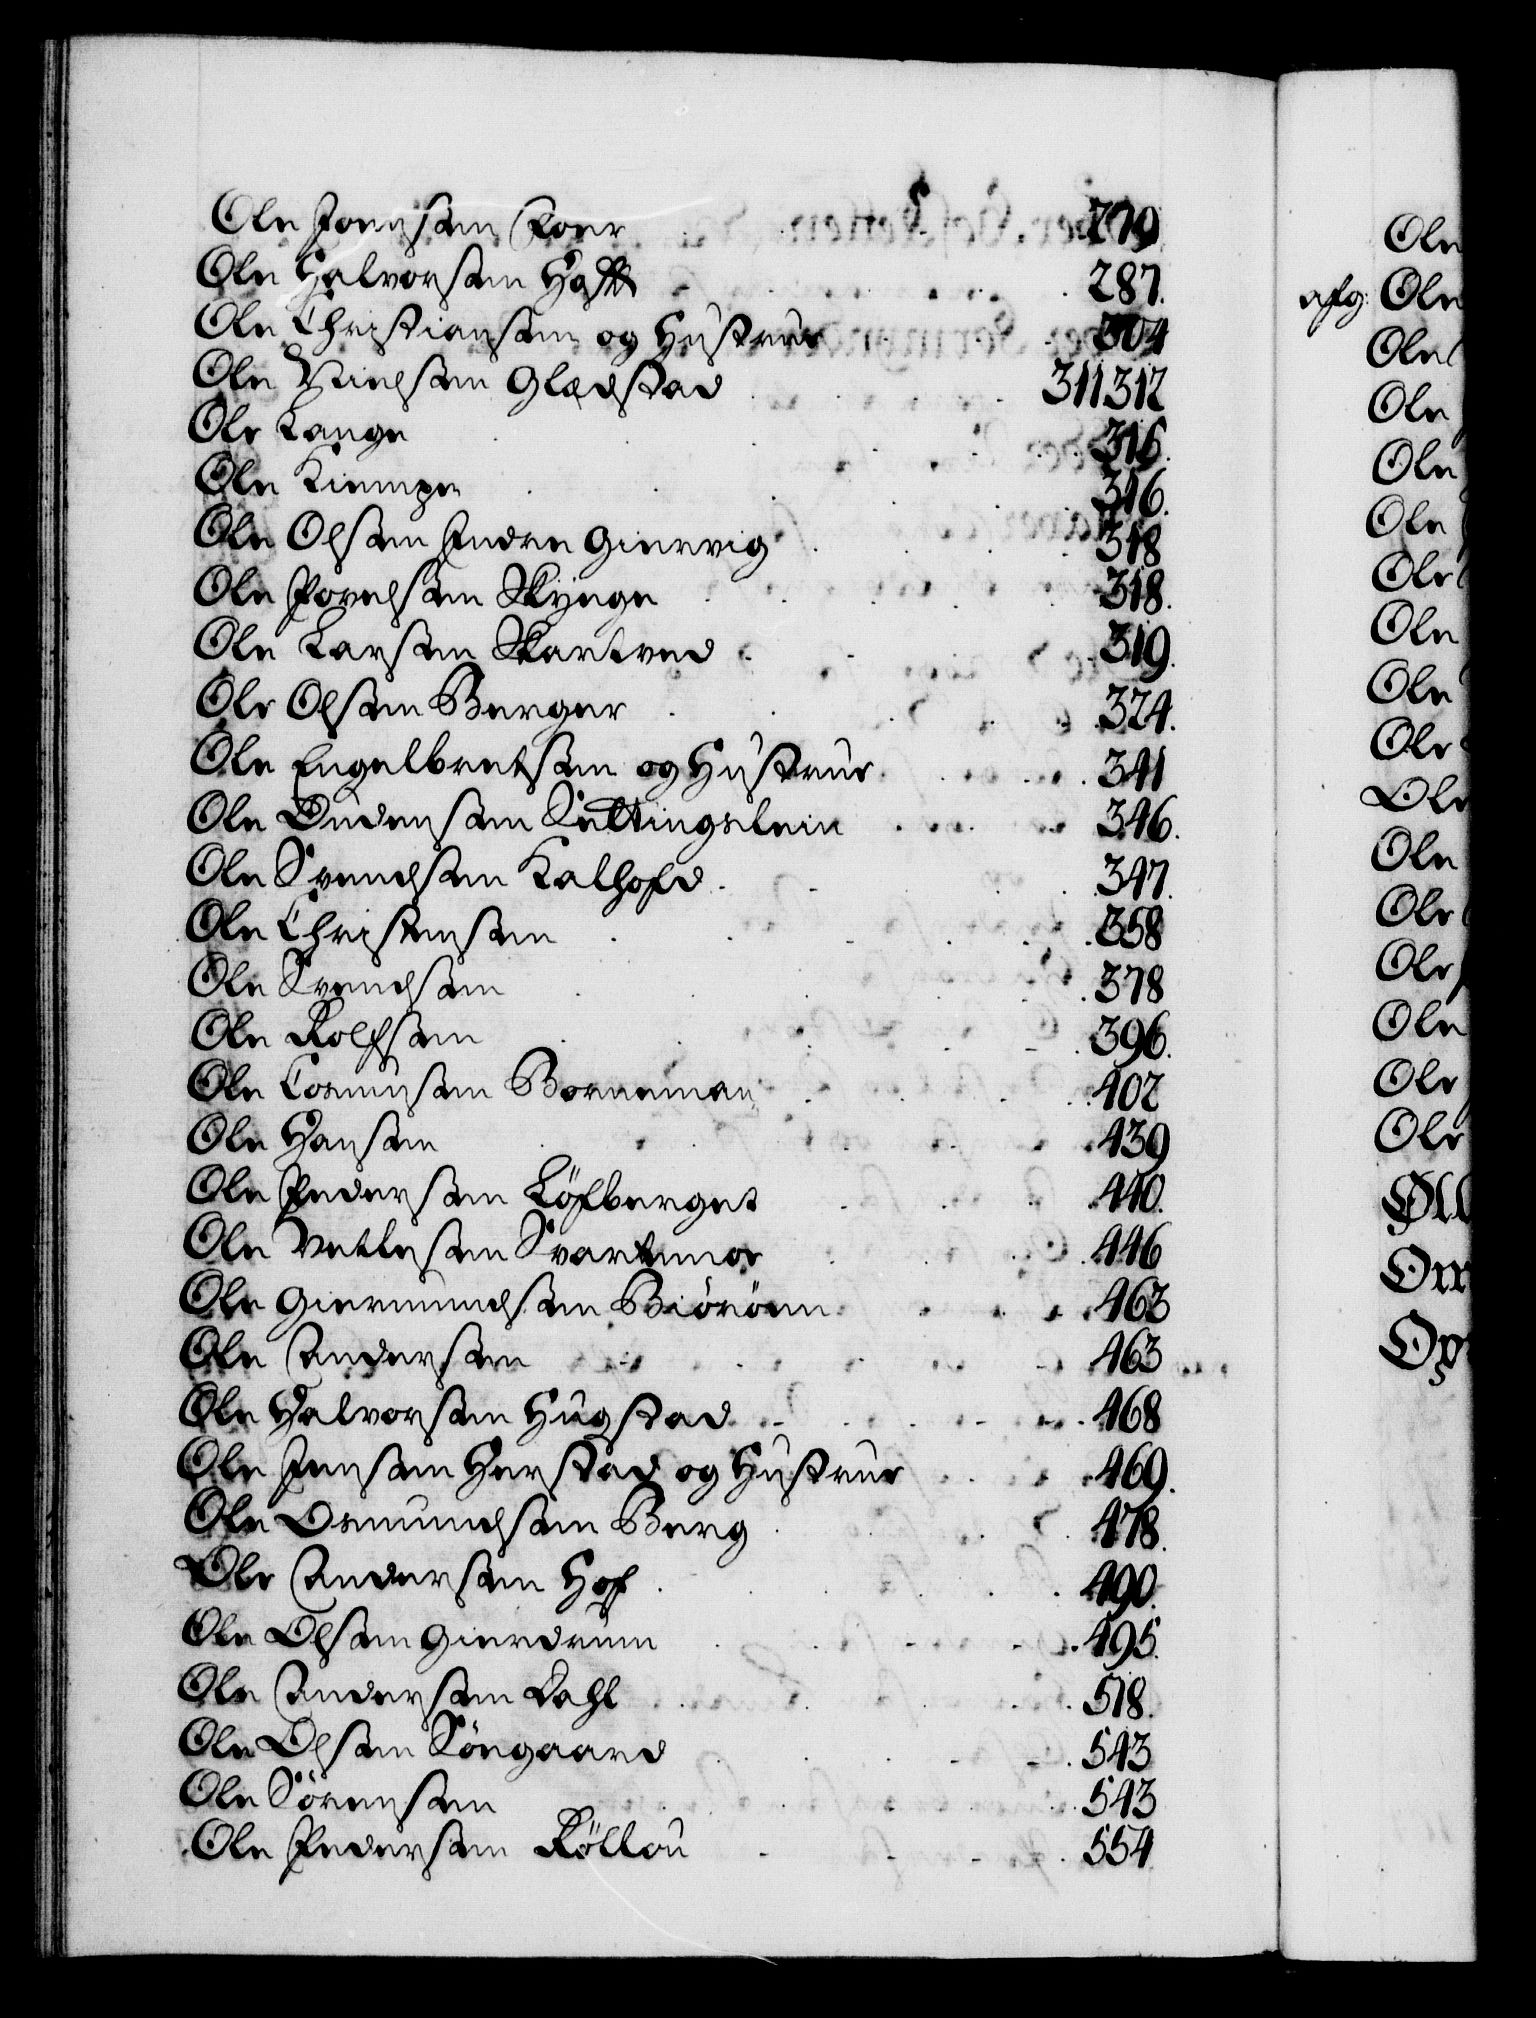 Ole Joensen Foer . 279.
Ole Halvorsen Hafft . . . 287.
Ole Christiansen og Hustrue . . 304
Ole Nielsen Gladstad . . . 311 312
Ole Lange . . . 315.
Ole Kiempe . . . 316.
Ole Olsen Indre Giervig . . . 318
Ole Povelsen Skyege . . . 318.
Ole Larsen Skartved . . . 319.
Ole Olsen Berger . . . 324.
Ole Engelbretsen og Hustrue . . . 341
Ole Oudensen Kettingslein . . . 346.
Ole Svendsen Kalhofd . . . 347.
Ole Christensen . . . 358
Ole Svendsen . . . 378
Ole Rolfsen . . . 396.
Ole Cosmusen Borneman . . . 402
Ole Hansen . . . 439
Ole Pedersen Löfberget . . . 440.
Ole Vetlesen Svartemoe . . . 446
Ole Giermundsen Biöröen . . . 463
Ole Andersen . . . 463
Ole Halvorsen Hugstad . . . 468
Ole Jensen Herstad og Hustrue . . . 469.
Ole Osmundsen Berg . . . 478.
Ole Andersen Hof . . . 490.
Ole Olsen Gierdrum . . . 495.
Ole Andersen Dahl . . . 518.
Ole Olsen Söegaard . . . 543
Ole Sörensen . . . 543
Ole Pedersen Röllou . . . 554.
Ole
afg: Ole
Ole
Ole
Ole
Ole
Ole
Ole
Ole
Ole
Ole
Ole
Ole
Ole
Ole
Ole
Ole
Øll
Orr
Op